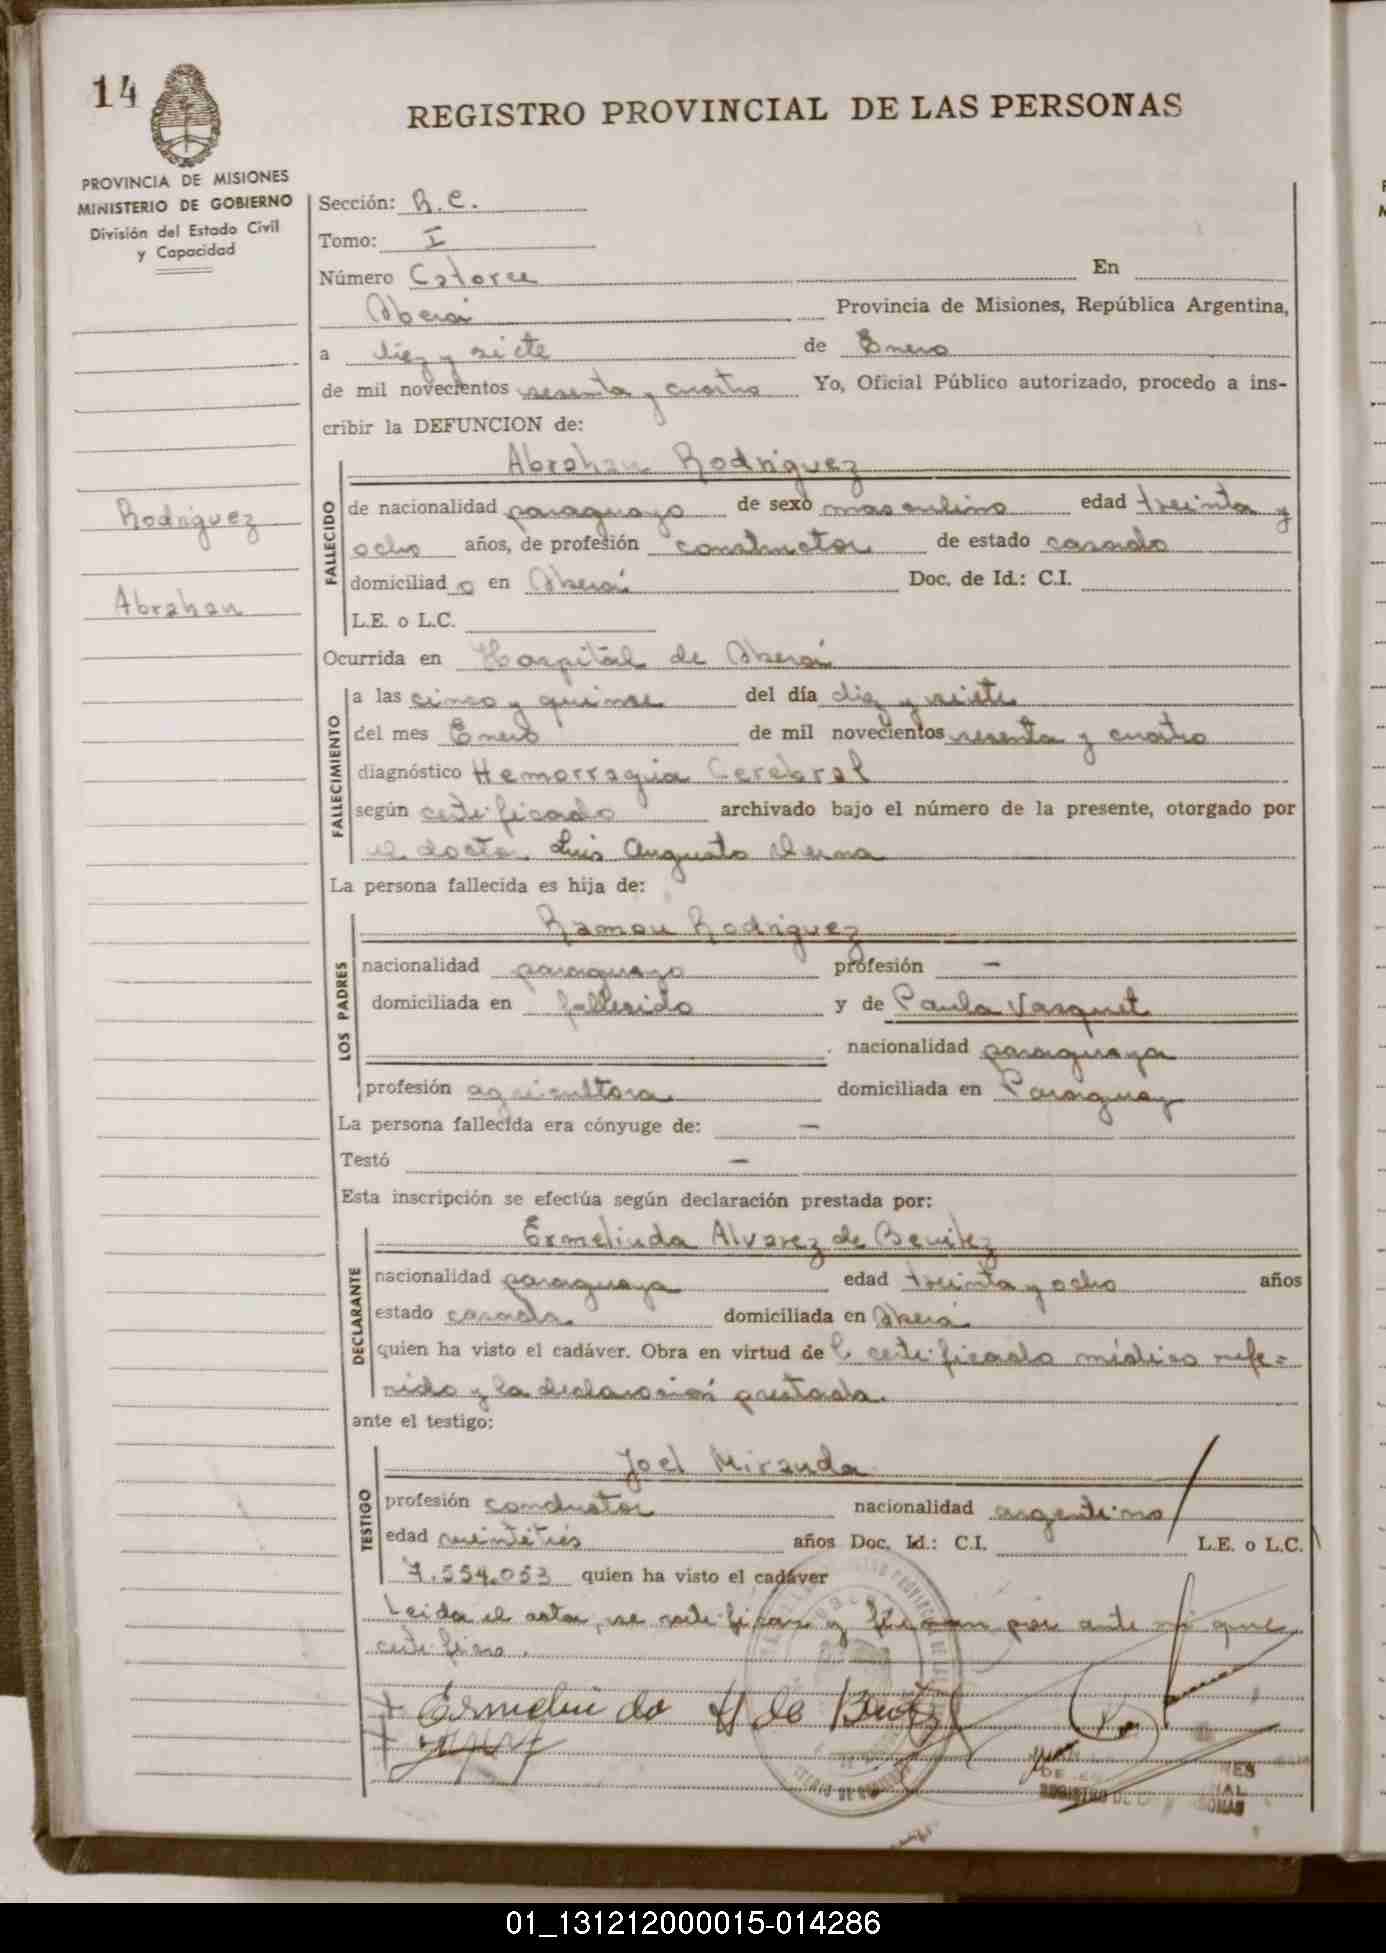 14
REGISTRO PROVINCIAL DE LAS PERSONAS
PROVINCIA DE MISIONES
MINISTERIO DE GOBIERNO
División del Estado Civil
y Capacidad
Rodriguez
Abrahan
Sección: R.C.
Tomo: I
Número Catorce En
Oberá Provincia de Misiones, República Argentina,
a diez y siete de Enero
de mil novecientos sesenta y cuatro Yo, Oficial Público autorizado, procedo a ins-
cribir la DEFUNCION de:
Abrahan Rodriguez
FALLECIDO
de nacionalidad paraguayo de sexo masculino edad treinta y
ocho años, de profesión constructor de estado casado
domiciliado en Oberá Doc. de Id.: C.I.
L.E. o L.C.
Ocurrida en Hospital de Oberá
FALLECIMIENTO
a las cinco y quince del día diez y siete
del mes Enero de mil novecientos sesenta y cuatro
diagnóstico Hemorragia Cerebral
según certificado archivado bajo el número de la presente, otorgado por
el doctor Luis Augusto
La persona fallecida es hija de:
Ramon Rodriguez
LOS PADRES
nacionalidad paraguayo profesión —
domiciliada en fallecido y de Paula Vasquet
nacionalidad paraguaya
profesión agricultora domiciliada en Paraguay
La persona fallecida era cónyuge de: —
Testó —
Esta inscripción se efectúa según declaración prestada por:
Ermelinda Alvarez de Benitez
DECLARANTE
nacionalidad paraguaya edad treinta y ocho años
estado casada domiciliada en Oberá
quien ha visto el cadáver. Obra en virtud del certificado médico refe=
rido y la declaración prestada.
ante el testigo:
Joel Miranda
TESTIGO
profesión conductor nacionalidad argentino
edad veintitrés años Doc. Id.: C.I. L.E. o L.C.
7.554.053 quien ha visto el cadáver
Leida el acta, se ratifican y firman por ante mi que
certifico.
Ermelinda A de
01_131212000015-014286